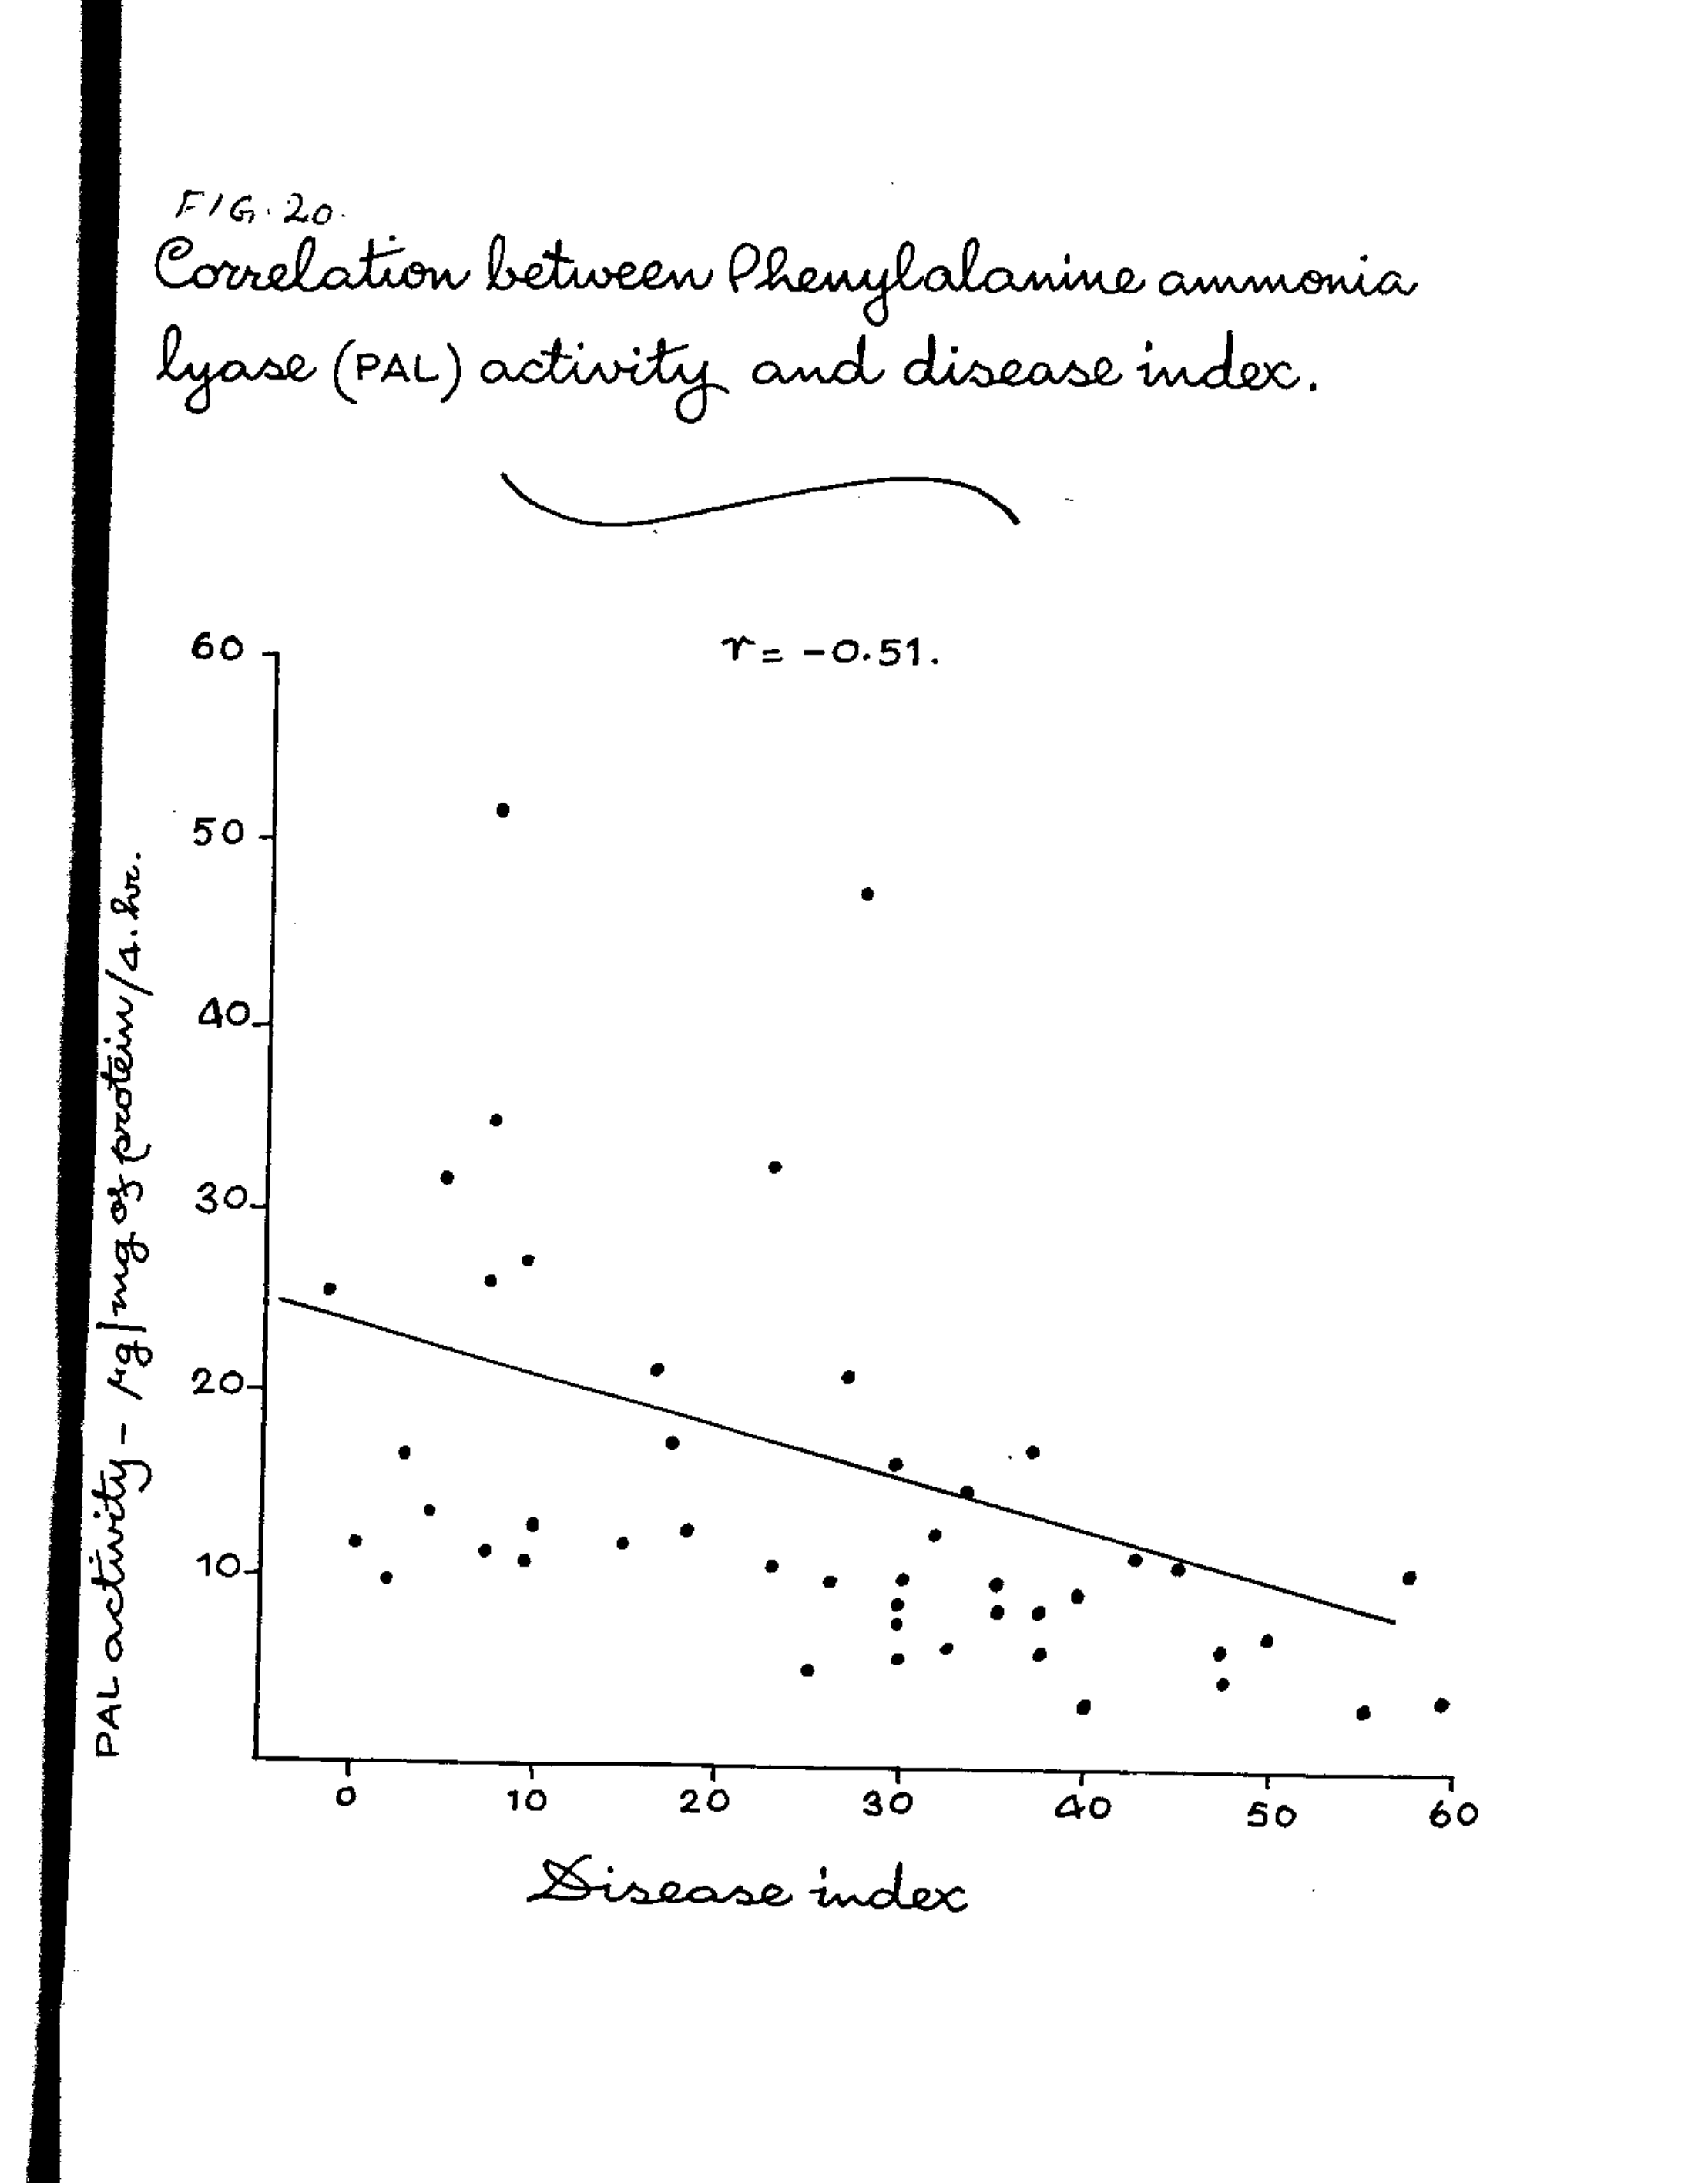 FIG. 20.
Correlation between Phenylalanine ammonia
lyase (PAL) activity and disease index.
r = -0.51.
60
50
40
30
20
10
PAL activity - μg/mg of protein/4.hr.
0 10 20 30 40 50 60
Disease index